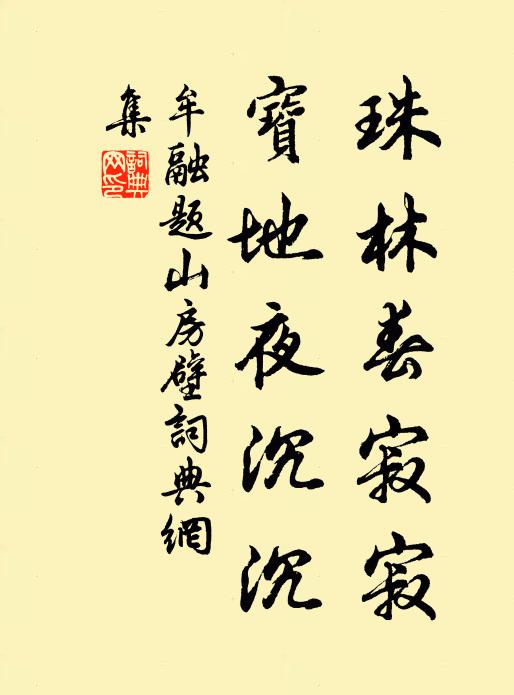 珠林春寂寂
寶地夜沉沉
牟融題山房壁詞典網
集
詞典網印